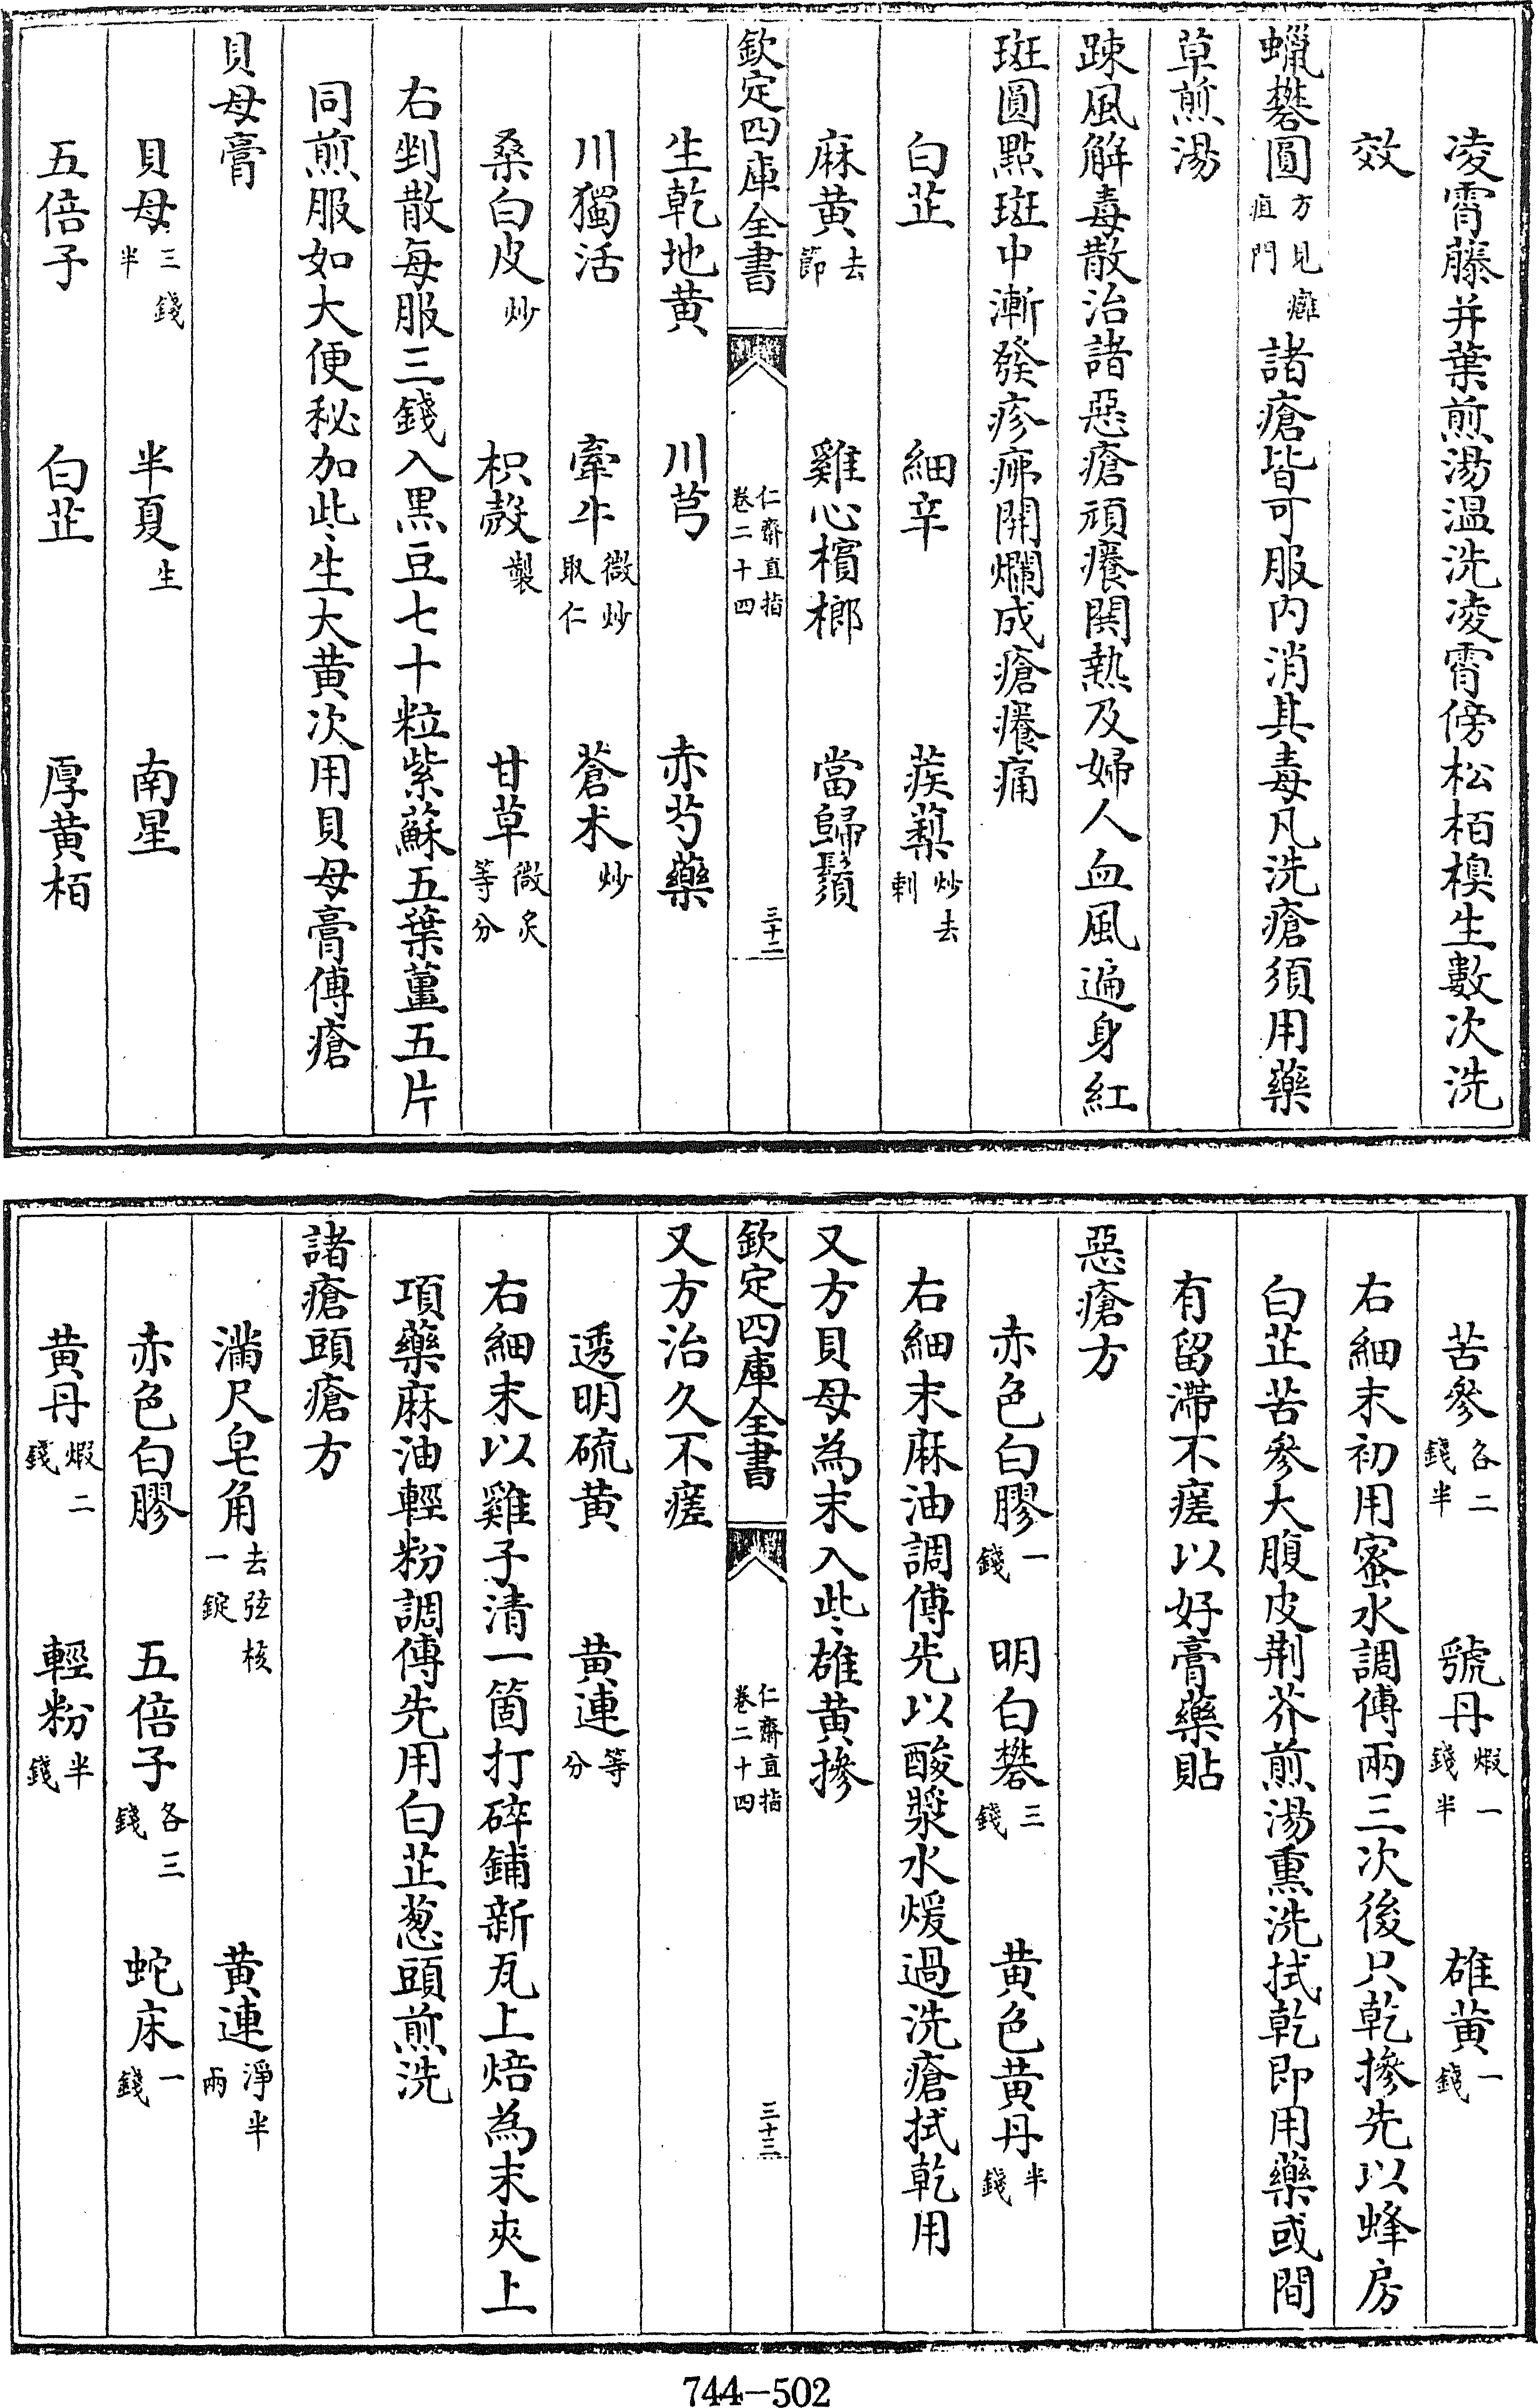 凌霄藤并葉煎湯温洗凌霄傍松栢梘生數次洗
效
蠟礬圓方見癰疽門諸瘡皆可服内消其毒凡洗瘡須用藥
草煎湯
踈風解毒散治諸惡瘡頑癢関熱及婦人血風遍身紅
斑圓㸃斑中漸發疹痱開爛成瘡癢痛
白芷 細辛 蒺䔧炒去刺
麻黄去節 雞心檳榔 當歸鬚
欽定四庫全書 仁齋直指卷二十四 三十二
生乾地黄 川芎 赤芍藥
川獨活 牽牛微炒取仁 蒼朮炒
桑白皮炒 枳殼製 甘草微炙等分
右剉散每服三錢入黒豆七十粒紫蘇五葉薑五片
同煎服如大便秘加些生大黄次用貝母膏傅瘡
貝母膏
貝母三錢半 半夏生 南星
五倍子 白芷 厚黄栢
苦參各二錢半 虢丹煆一錢半 雄黄一錢
右細末初用蜜水調傅兩三次後只乾摻先以蜂房
白芷苦參大腹皮荆芥煎湯熏洗拭乾即用藥或間
有留滯不瘥以好膏藥貼
惡瘡方
赤色白膠一錢 明白礬三錢 黄色黄丹半錢
右細末麻油調傅先以酸漿水煖過洗瘡拭乾用
又方貝母為末入些雄黄摻
欽定四庫全書 仁齋直指卷二十四 三十三
又方治久不瘥
透明硫黄 黄連等分
右細末以雞子清一箇打碎鋪新瓦上焙為末夾上
項藥麻油輕粉調傅先用白芷葱頭煎洗
諸瘡頭瘡方
滿尺皂角去弦核一錠 黄連淨半兩
赤色白膠 五倍子各三錢 蛇床一錢
黄丹煆二錢 輕粉半錢
744-502